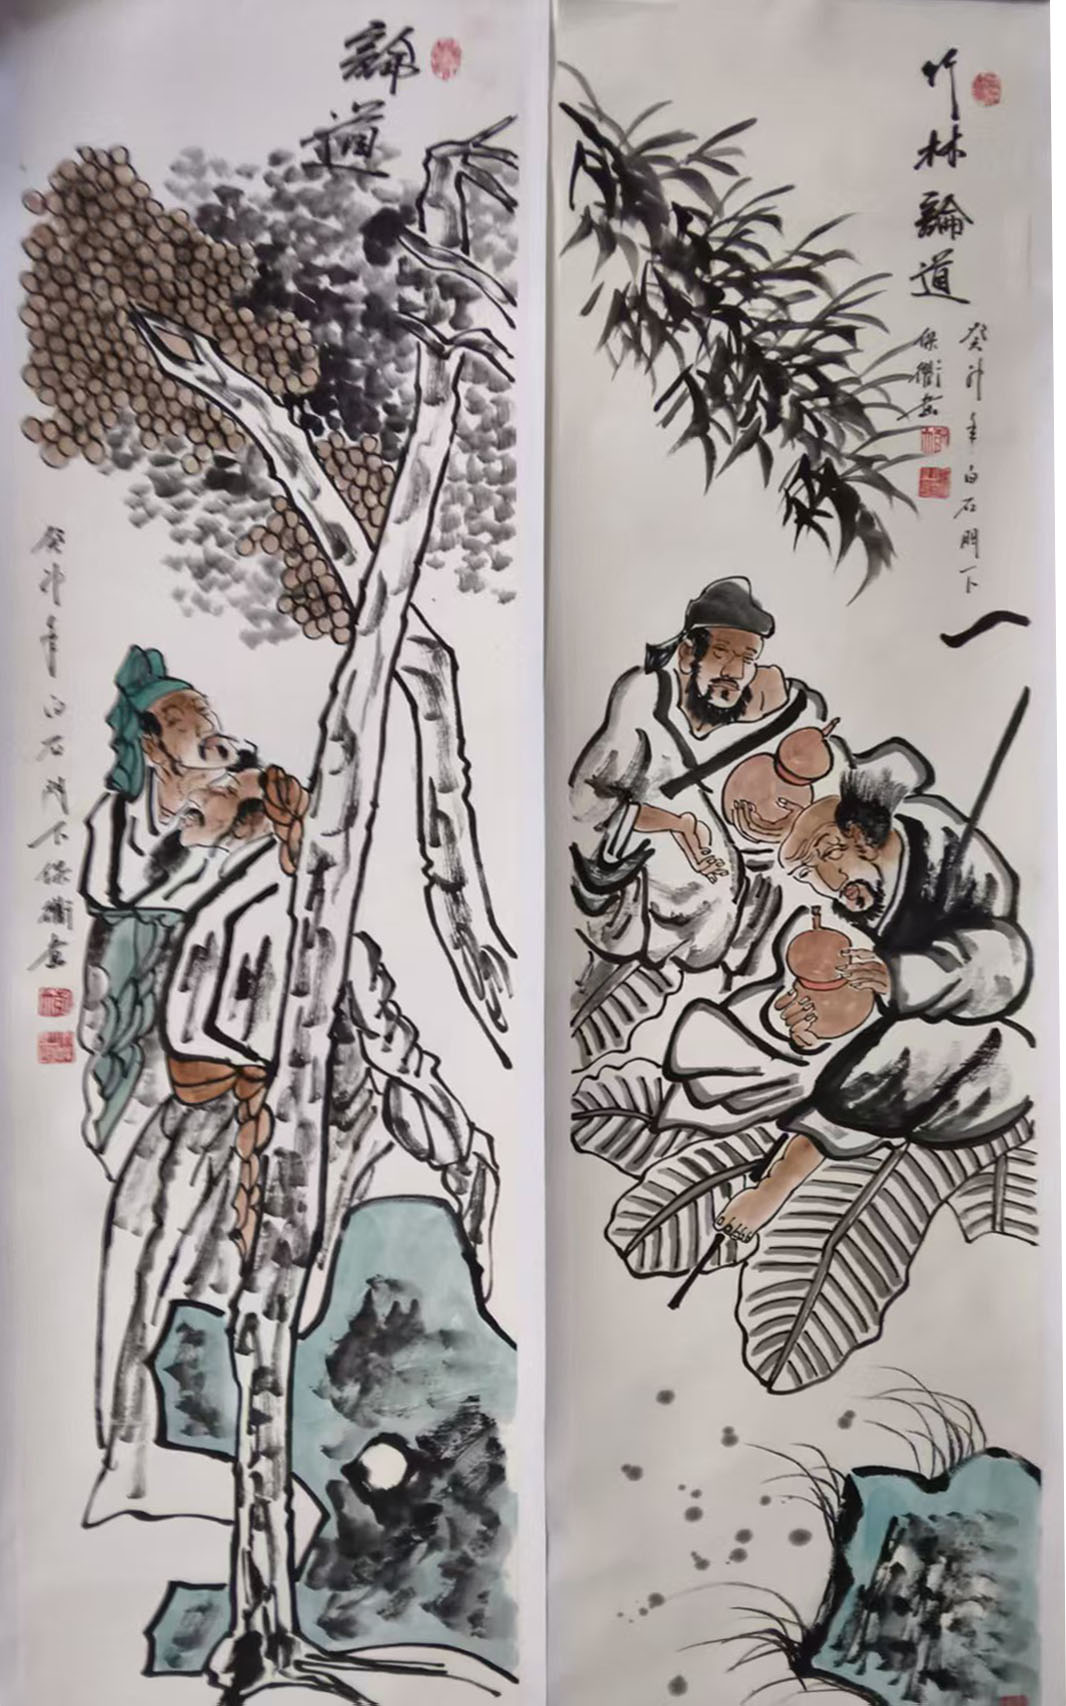 論道
癸卯年白石門下保衢畫
竹林論道
癸卯年白石門下
保衢畫